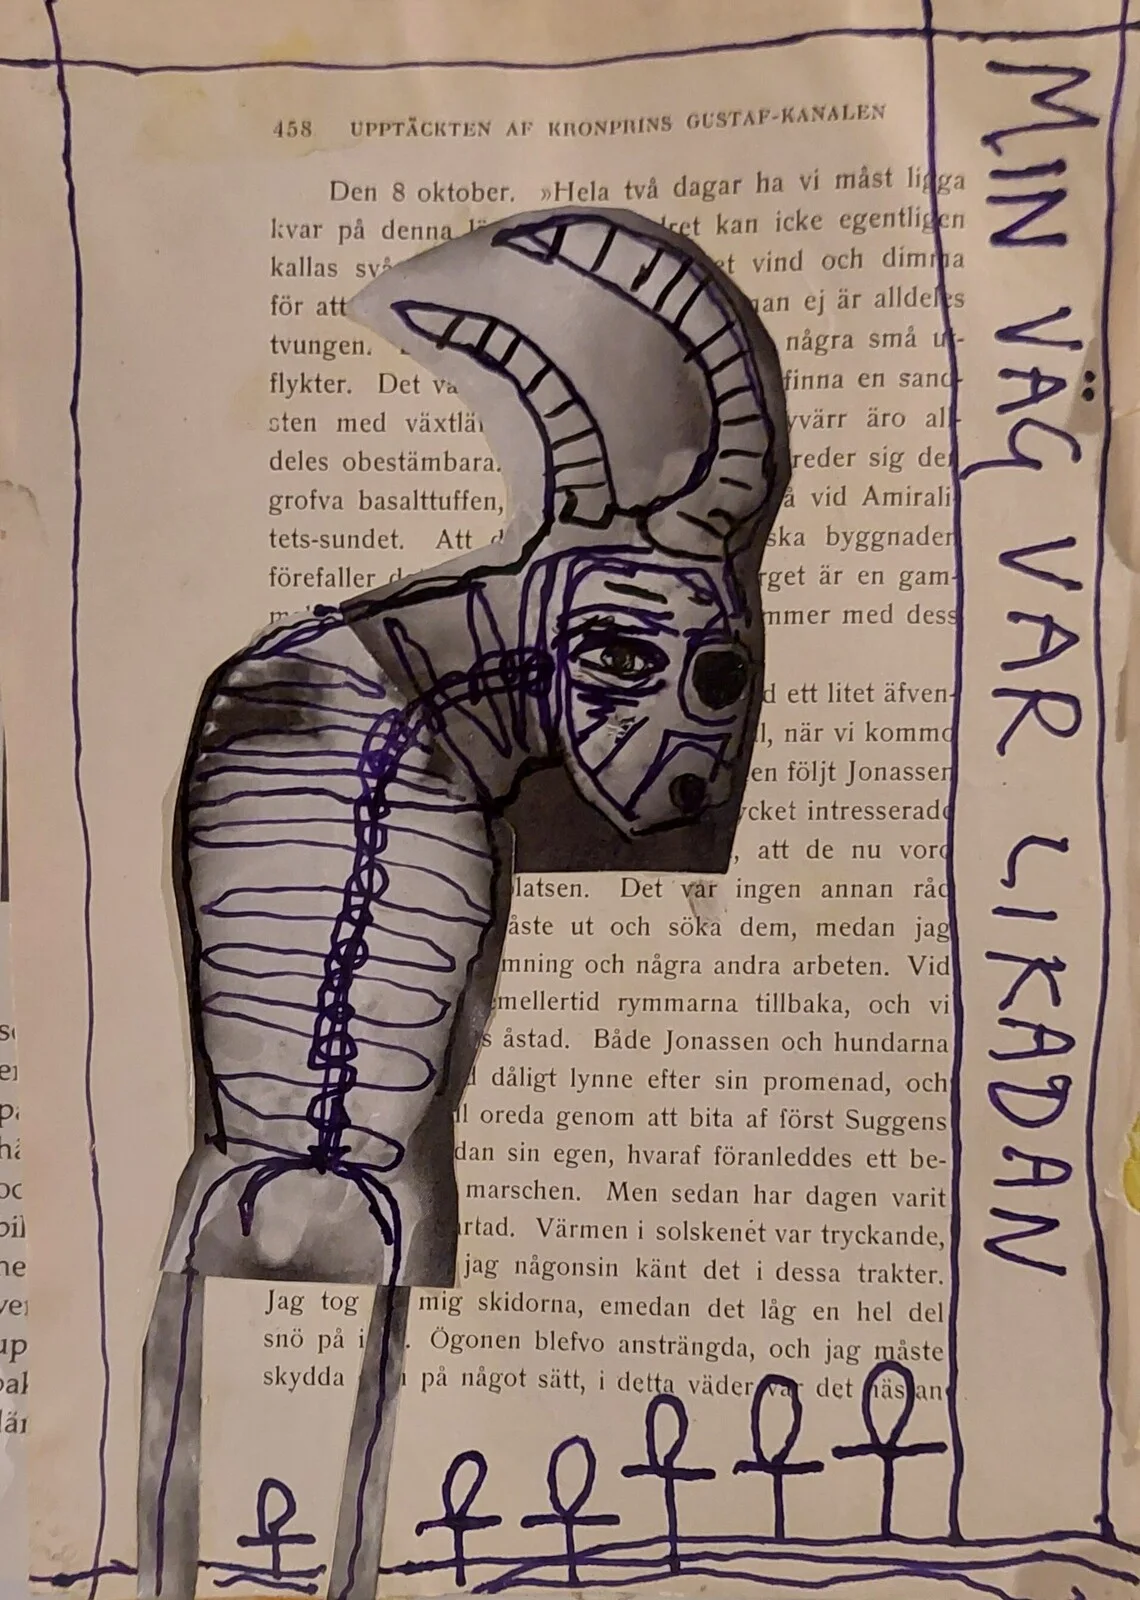 458 UPPTÄCKTEN AF KRONPRINS GUSTAF-KANALEN
Den 8 oktober. »Hela två dagar ha vi måst ligga
kvar på denna kan icke egentligen
kallas vind och dimma
för att ej är alldeles
tvungen. några små ut-
flykter. Det finna en sand-
sten med äro all-
deles obestämbara. sig den
grofva basalttuffen, vid Amirali-
tets-sundet. Att byggnaden
förefaller är en gam-
med dess
ett litet äfven-
när vi kommo
följt Jonassen
intresserade
att de nu vord
Det var ingen annan råd
ut och söka dem, medan jag
och några andra arbeten. Vid
rymmarna tillbaka, och vi
åstad. Både Jonassen och hundarna
dåligt lynne efter sin promenad, och
oreda genom att bita af först Suggens
sin egen, hvaraf föranleddes ett be-
marschen. Men sedan har dagen varit
Värmen i solskenet var tryckande,
jag någonsin känt det i dessa trakter.
Jag tog mig skidorna, emedan det låg en hel del
snö på Ögonen blefvo ansträngda, och jag måste
skydda på något sätt, i detta väder var det nästan
MIN VÄG VAR LIKADAN